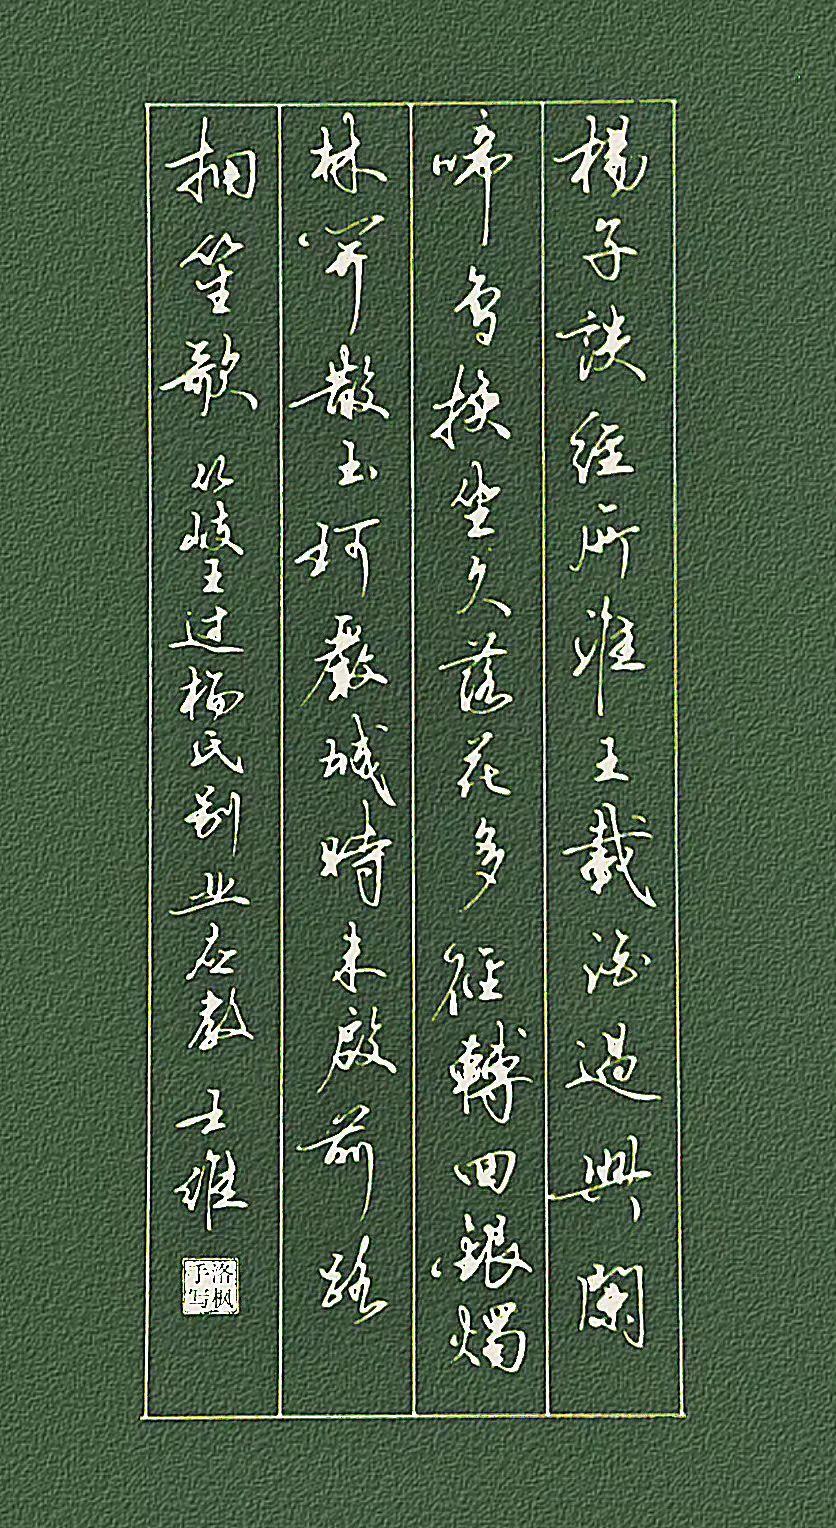 楊子談經所淮王載酒過興闌
啼鳥換坐久落花多徑轉回銀燭
林開散玉珂嚴城時未啟前路
拥笙歌 从岐王过杨氏别业应教 王维
洛枫手写